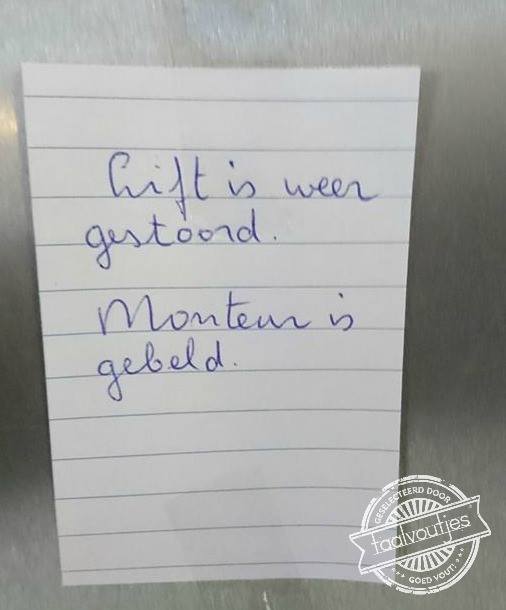 Lift is weer
gestoord.
Monteur is
gebeld.
GESELECTEERD DOOR
taalvoutjes
GOED VOUT!